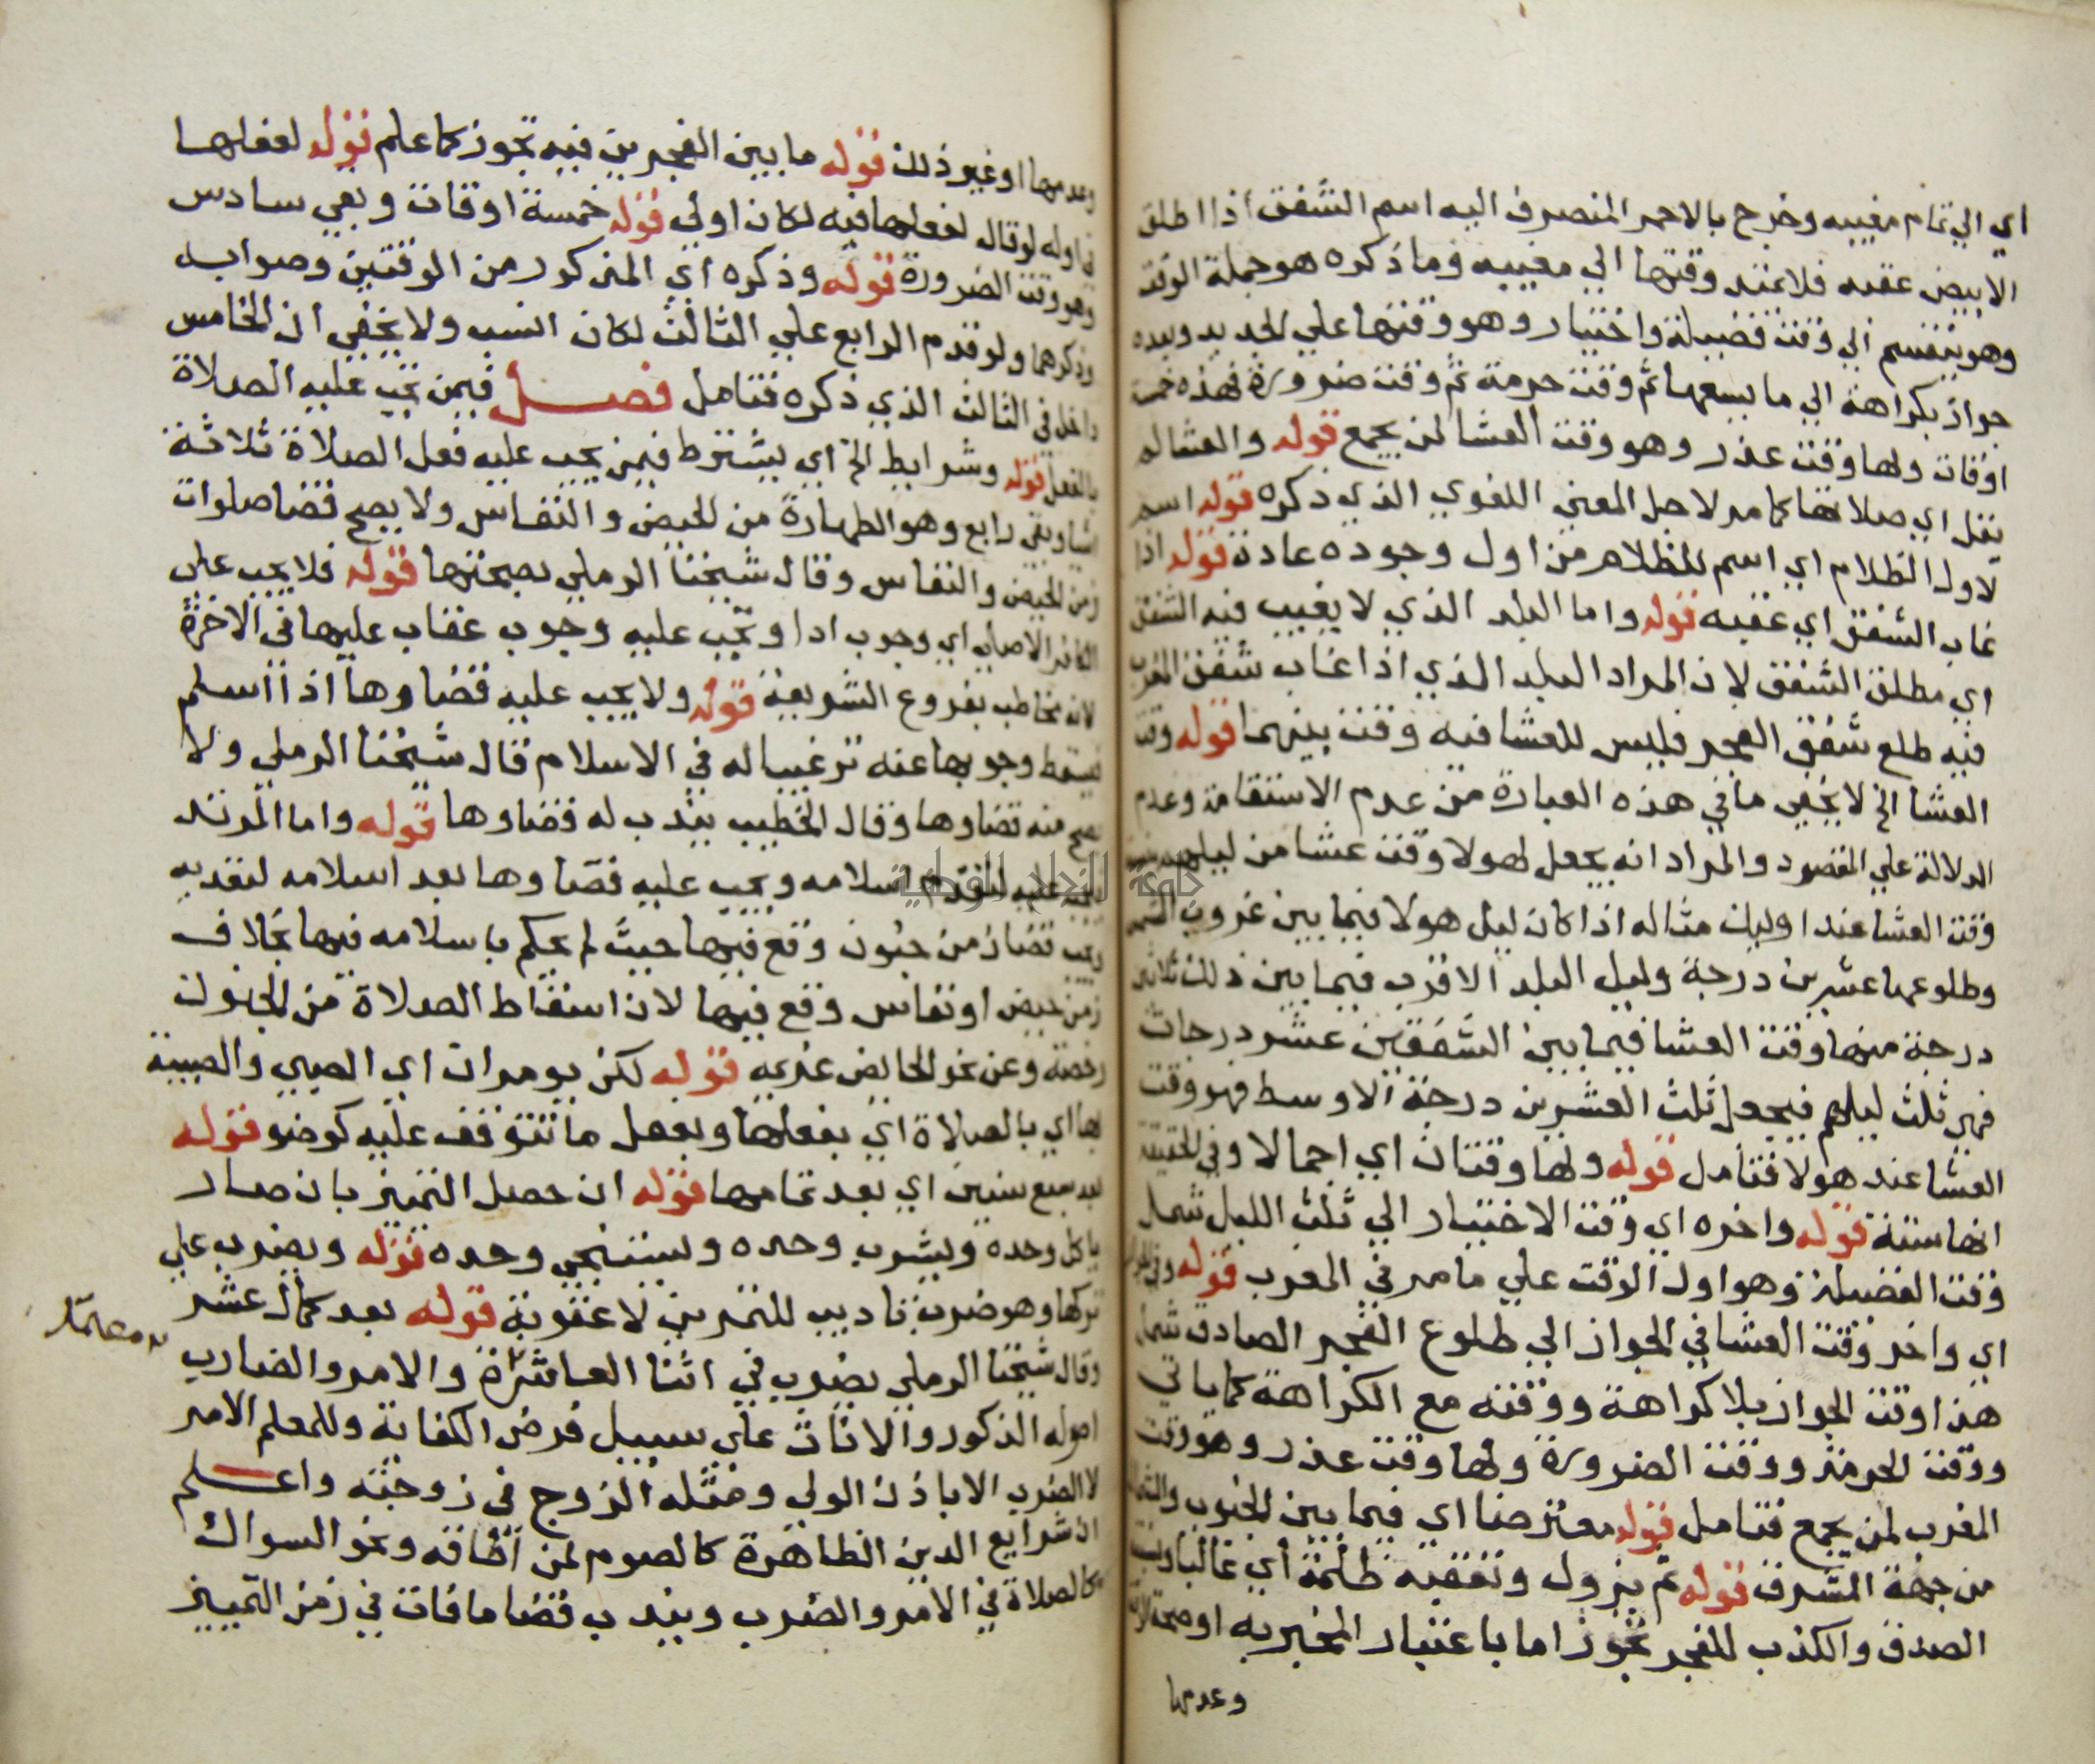 اي الي تمام مغيبه وخرج بالاحمر المنصرف اليه اسم الشفق اذا اطلق
الابيض عقبه فلا يمتد وقتها الي مغيبه وما ذكره هو جملة الوقت
وهو ينقسم الي وقت فضيلة واختيار وهو وقتها علي الجديد وبعده
جواز بكراهة الي ما يسعها ثم وقت حرمة ثم وقت ضرورة فهذه خمسة
اوقات ولها وقت عذر وهو وقت العشا لمن يجمع قوله والعشا لم
يقل اي صلاتها كما مر لاجل المعني اللغوي الذي ذكره قوله اسم
لاول الظلام اي اسم للظلام من اول وجوده عادة قوله اذا
غاب الشفق اي عقبه قوله واما البلد الذي لا يغيب فيه الشفق
اي مطلق الشفق لان المراد البلد الذي اذا غاب شفق المغرب
فيه طلع شفق الفجر فليس للعشا فيه وقت بينهما قوله وقت
العشا الخ لا يخفي ما في هذه العبارة من عدم الاستقامة وعدم
الدلالة علي المقصود والمراد انه يجعل لهولا وقت عشا من ليلهم
وقت العشا عند اوليك مثاله اذا كان ليل هولا فيما بين غروب الشمس
وطلوعها عشرين درجة وليل البلد الاقرب فيما بين ذلك ثلاثين
درجة منها وقت العشا فيما بين الشفقين عشر درجات
فهي ثلث ليلهم فيجعل ثلث العشرين درجة الاوسط فهو وقت
العشا عند هولا فتامل قوله ولها وقتان اي اجمالا وفي الحقيقة
انها ستة قوله واخره اي وقت الاختيار الي ثلث الليل شمل
وقت الفضيلة وهو اول الوقت علي ما مر في المغرب قوله وفي الجواز
اي واخر وقت العشا في الجواز الي طلوع الفجر الصادق شمل
هذا وقت الجواز بلا كراهة ووقته مع الكراهة كما ياتي
ووقت الحرمة ووقت الضرورة ولها وقت عذر وهو وقت
المغرب لمن يجمع فتامل قوله معترضا اي فيما بين الجنوب والشمال
من جهة المشرق قوله ثم يزول وتعقبه ظلمة اي غالبا
الصدق والكذب للفجر تجوز اما باعتبار المخبر به او
وعدمها
وعدمها او غير ذلك قوله ما بين الفجرين فيه تجوز كما علم قوله لفعلها
في اوله لو قال لفعلها فيه لكان اولي قوله خمسة اوقات وبقي سادس
وهو وقت الضرورة قوله وذكره اي المذكور من الوقتين وصوابه
وذكرهما ولو قدم الرابع علي الثالث لكان انسب ولا يخفي ان الخامس
داخل في الثالث الذي ذكره فتامل فصل فيمن تجب عليه الصلاة
بالفعل قوله وشرايط الخ اي يشترط فيمن يجب عليه فعل الصلاة ثلاثة
اشيا وبقي رابع وهو الطهارة من الحيض والنفاس ولا يصح قضا صلوات
زمن الحيض والنفاس وقال شيخنا الرملي بصحتها قوله فلا يجب علي
الكافر الاصلي اي وجوب ادا وتجب عليه وجوب عقاب عليها في الاخرة
لانه مخاطب بفروع الشريعة قوله ولا يجب عليه قضاوها اذا اسلم
فيسقط وجوبها عنه ترغيبا له في الاسلام قال شيخنا الرملي ولا
يصح منه قضاوها وقال الخطيب يندب له قضاوها قوله واما المرتد
عليه لتقدم اسلامه ويجب عليه قضاوها بعد اسلامه لتعديه
ويجب قضا زمن جنون وقع فيها حيث لم يحكم باسلامه فيها بخلاف
زمن حيض او نفاس وقع فيها لان اسقاط الصلاة من الجنون
رخصة وعن نحو الحايض عزيمة قوله لكن يومران اي الصبي والصبية
بها اي بالصلاة اي بفعلها وبفعل ما تتوقف عليه كوضو قوله
بعد سبع سنين اي بعد تمامها قوله ان حصل التمييز بان صار
ياكل وحده ويشرب وحده ويستنجي وحده قوله ويضرب علي
تركها وهو ضرب تاديب للتمرين لا عقوبة قوله بعد كمال عشر
وقال شيخنا الرملي يضرب في اثنا العاشرة والامر والضارب
اصوله الذكور والاناث علي سبيل فرض الكفاية وللمعلم الامر
لا الضرب الا باذن الولي ومثله الزوج في زوجته واعلم
ان شرايع الدين الظاهرة كالصوم لمن اطاقه ونحو السواك
كالصلاة في الامر والضرب ويندب قضا ما فات في زمن التمييز
معتمد
جامعة النجاح الوطنية